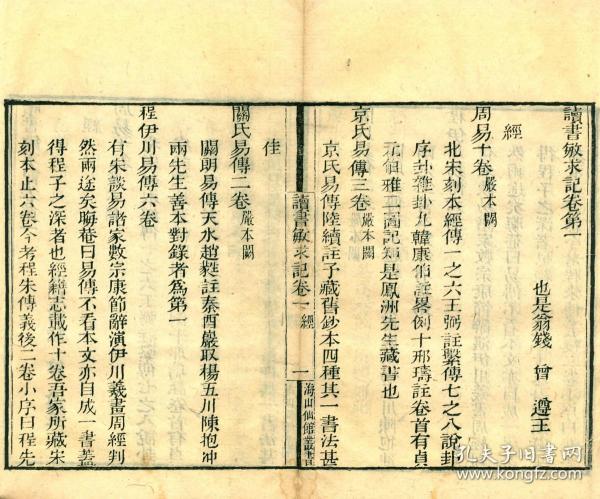 讀書敏求記卷第一
也是翁錢 曾 遵王
經
周易十卷 嚴本闕
北宋刻本經傳一之六王弼註繫傳七之八說卦
序卦雜卦九韓康伯註畧例十邢璹註卷首有貞
元伯雅二圖記知是鳳洲先生藏書也
京氏易傳三卷 嚴本闕
京氏易傳陸績註予藏舊鈔本四種其一書法甚
讀書敏求記卷一 經
一
海山仙館叢書
佳
關氏易傳一卷 嚴本闕
關朗易傳天水趙蕤註秦酉巖取楊五川陳抱冲
兩先生善本對錄者為第一
程伊川易傳六卷
有宋談易諸家數宗康節辭演伊川羲畫周經判
然兩途矣聊菴曰易傳不看本文亦自成一書蓋
得程子之深者也經籍志載作十卷吾家所藏宋
刻本止六卷今考程朱傳義後二卷小序曰程先
孔夫子旧书网
www.kongfz.com